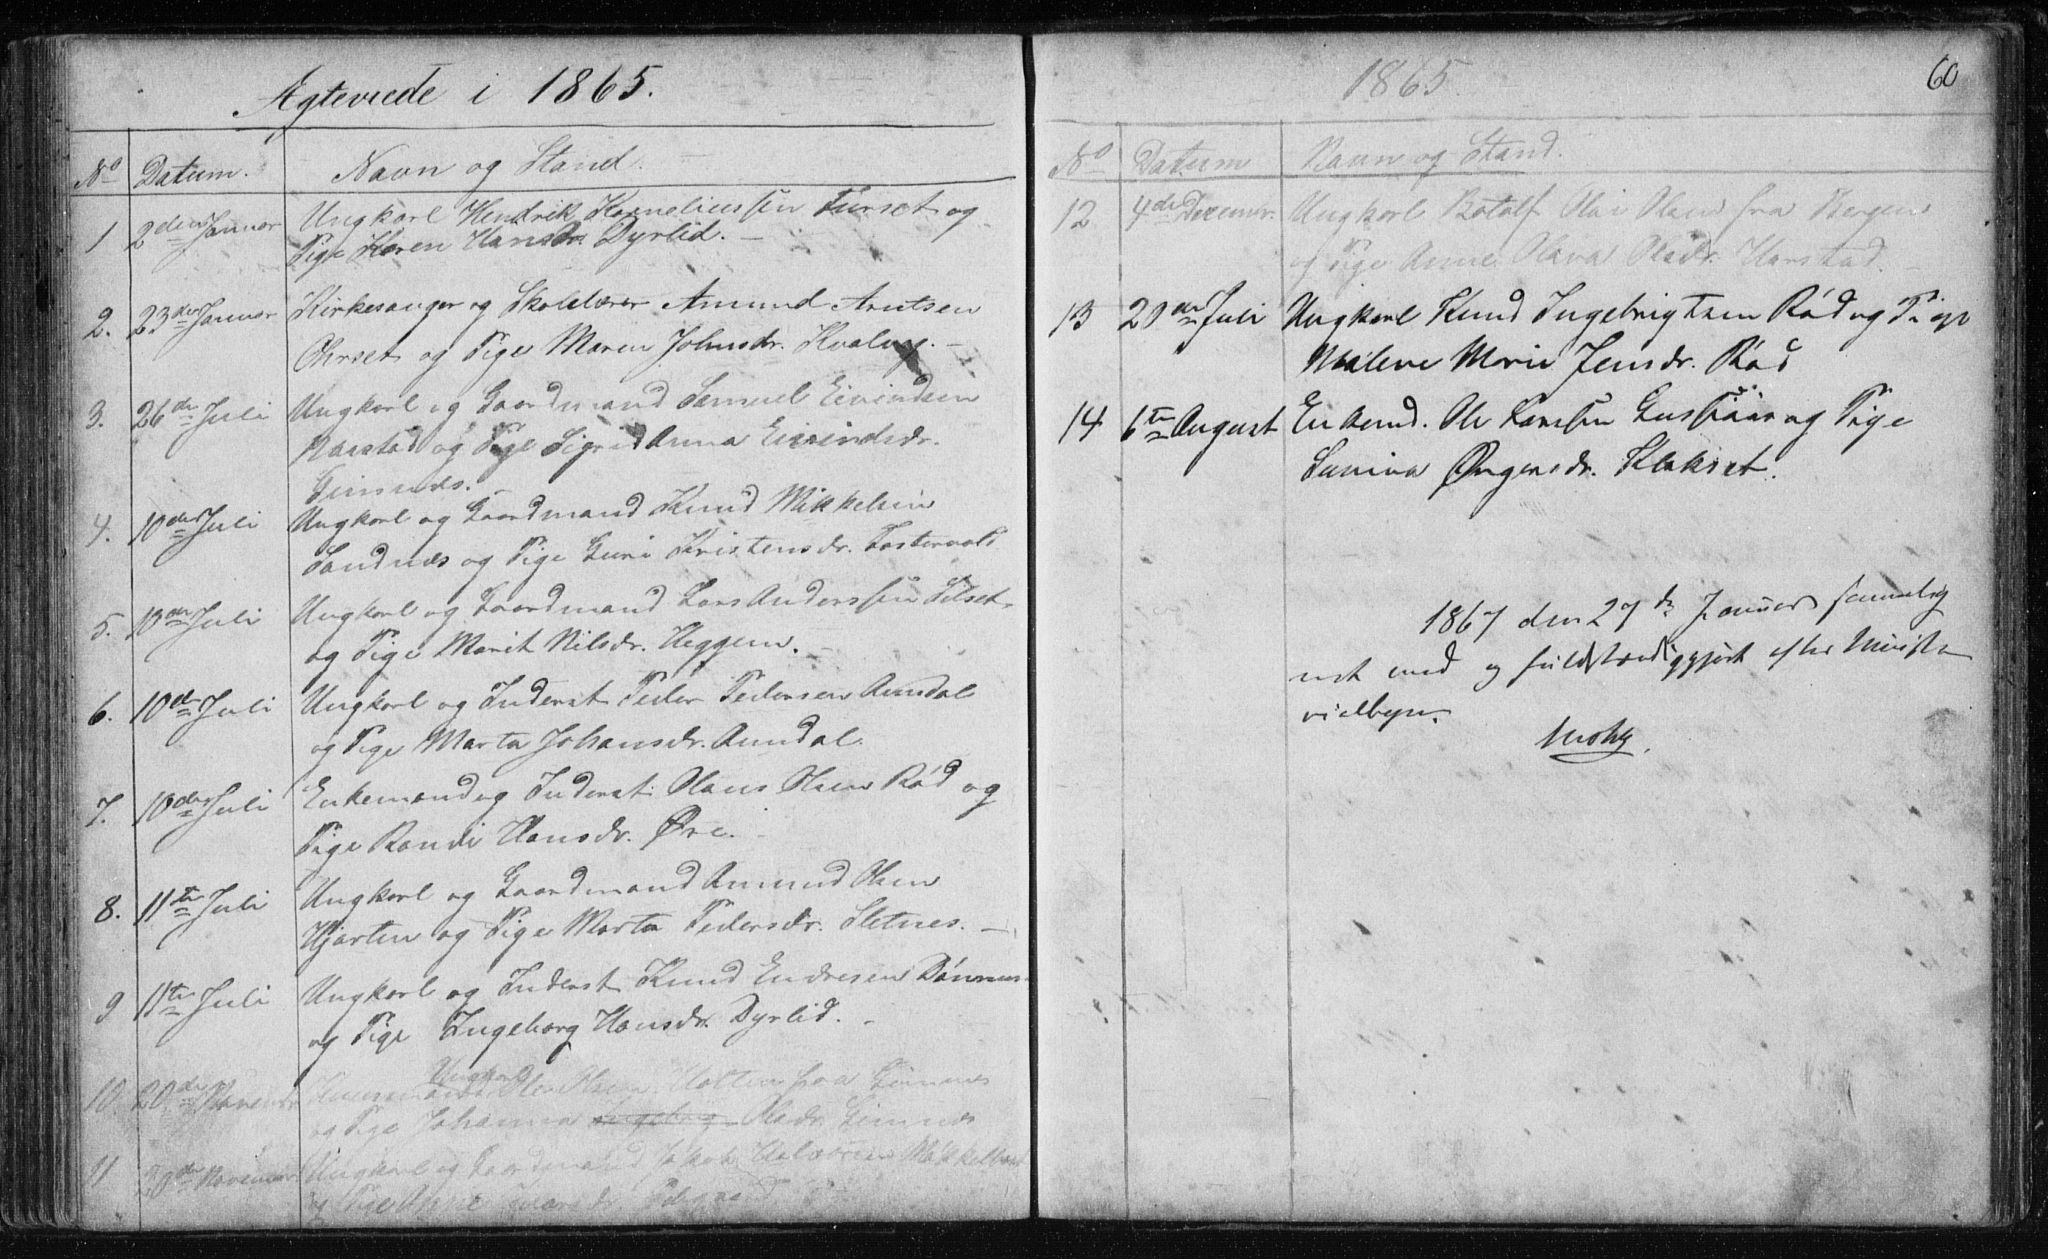 Ægteviede i 1865.
No Datum. Navn og Stand.
1 2den Januar Ungkarl Hendrik Korneliussen Furset og
Pige Karen Hansdr. Dyrlid.
2. 23de Januar Kirkesanger og Skolelærer Amund Arntsen
Ohrset og Pige Maren Johnsdr. Kvalvg.
3. 26de Juli Ungkarl og Gaardmand Samuel Eivindsen
Harstad og Pige Sigrid Anna Eivindsdr.
Gimnes.
4. 10de Juli Ungkarl og Gaardmand Knud Mikkelsen
Sandnes og Pige Guri Kristensdr. Fostervold
5. 10de Juli Ungkarl og Gaardmand Lars Anderssen Silset
og Pige Marit Nilsdr. Heggem.
6. 10de Juli Ungkarl og Inderst Peder Pedersen Aundal
og Pige Marta Johansdr. Aundal.
7. 10de Juli Enkemand og Inderst Hans Olsen Rød og
Pige Randi Hansdr. Øre.
8. 11te Juli Ungkarl og Gaardmand Amund Olsen
Hjorten og Pige Marta Pedersdr. Sletnes.
9 11te Juli Ungkarl og Inderst Knud Endresen Dønnes
og Pige Ingeborg Hansdr. Dyrlid.
Ungkarl
10. 20de Novembr Ole Olsen Holten paa Gimnes
og Pige Johanna Ingeborg Olsdr. Gimnes
11 20de November Ungkarl og Gaardmand Jakob
og Pige Anne
1865. 60
No Datum Navn og Stand.
12 4de Decembr. Ungkarl Botolf Olai Olsen fra Bergen
og Pige Anne Olava Olsdr. Harstad.
13 20de Juli Ungkarl Knud Ingebrigtsen Rød og Pige
Malene Marie Jensdr. Rød
14 6te August Enkemd. Ole Larssen Gussiaas og Pige
Sanina Øngensdr. Klakset.
1867 den 27de Januar sammelig
net med og fuldstændiggjort efter Ministe
rialbogen.